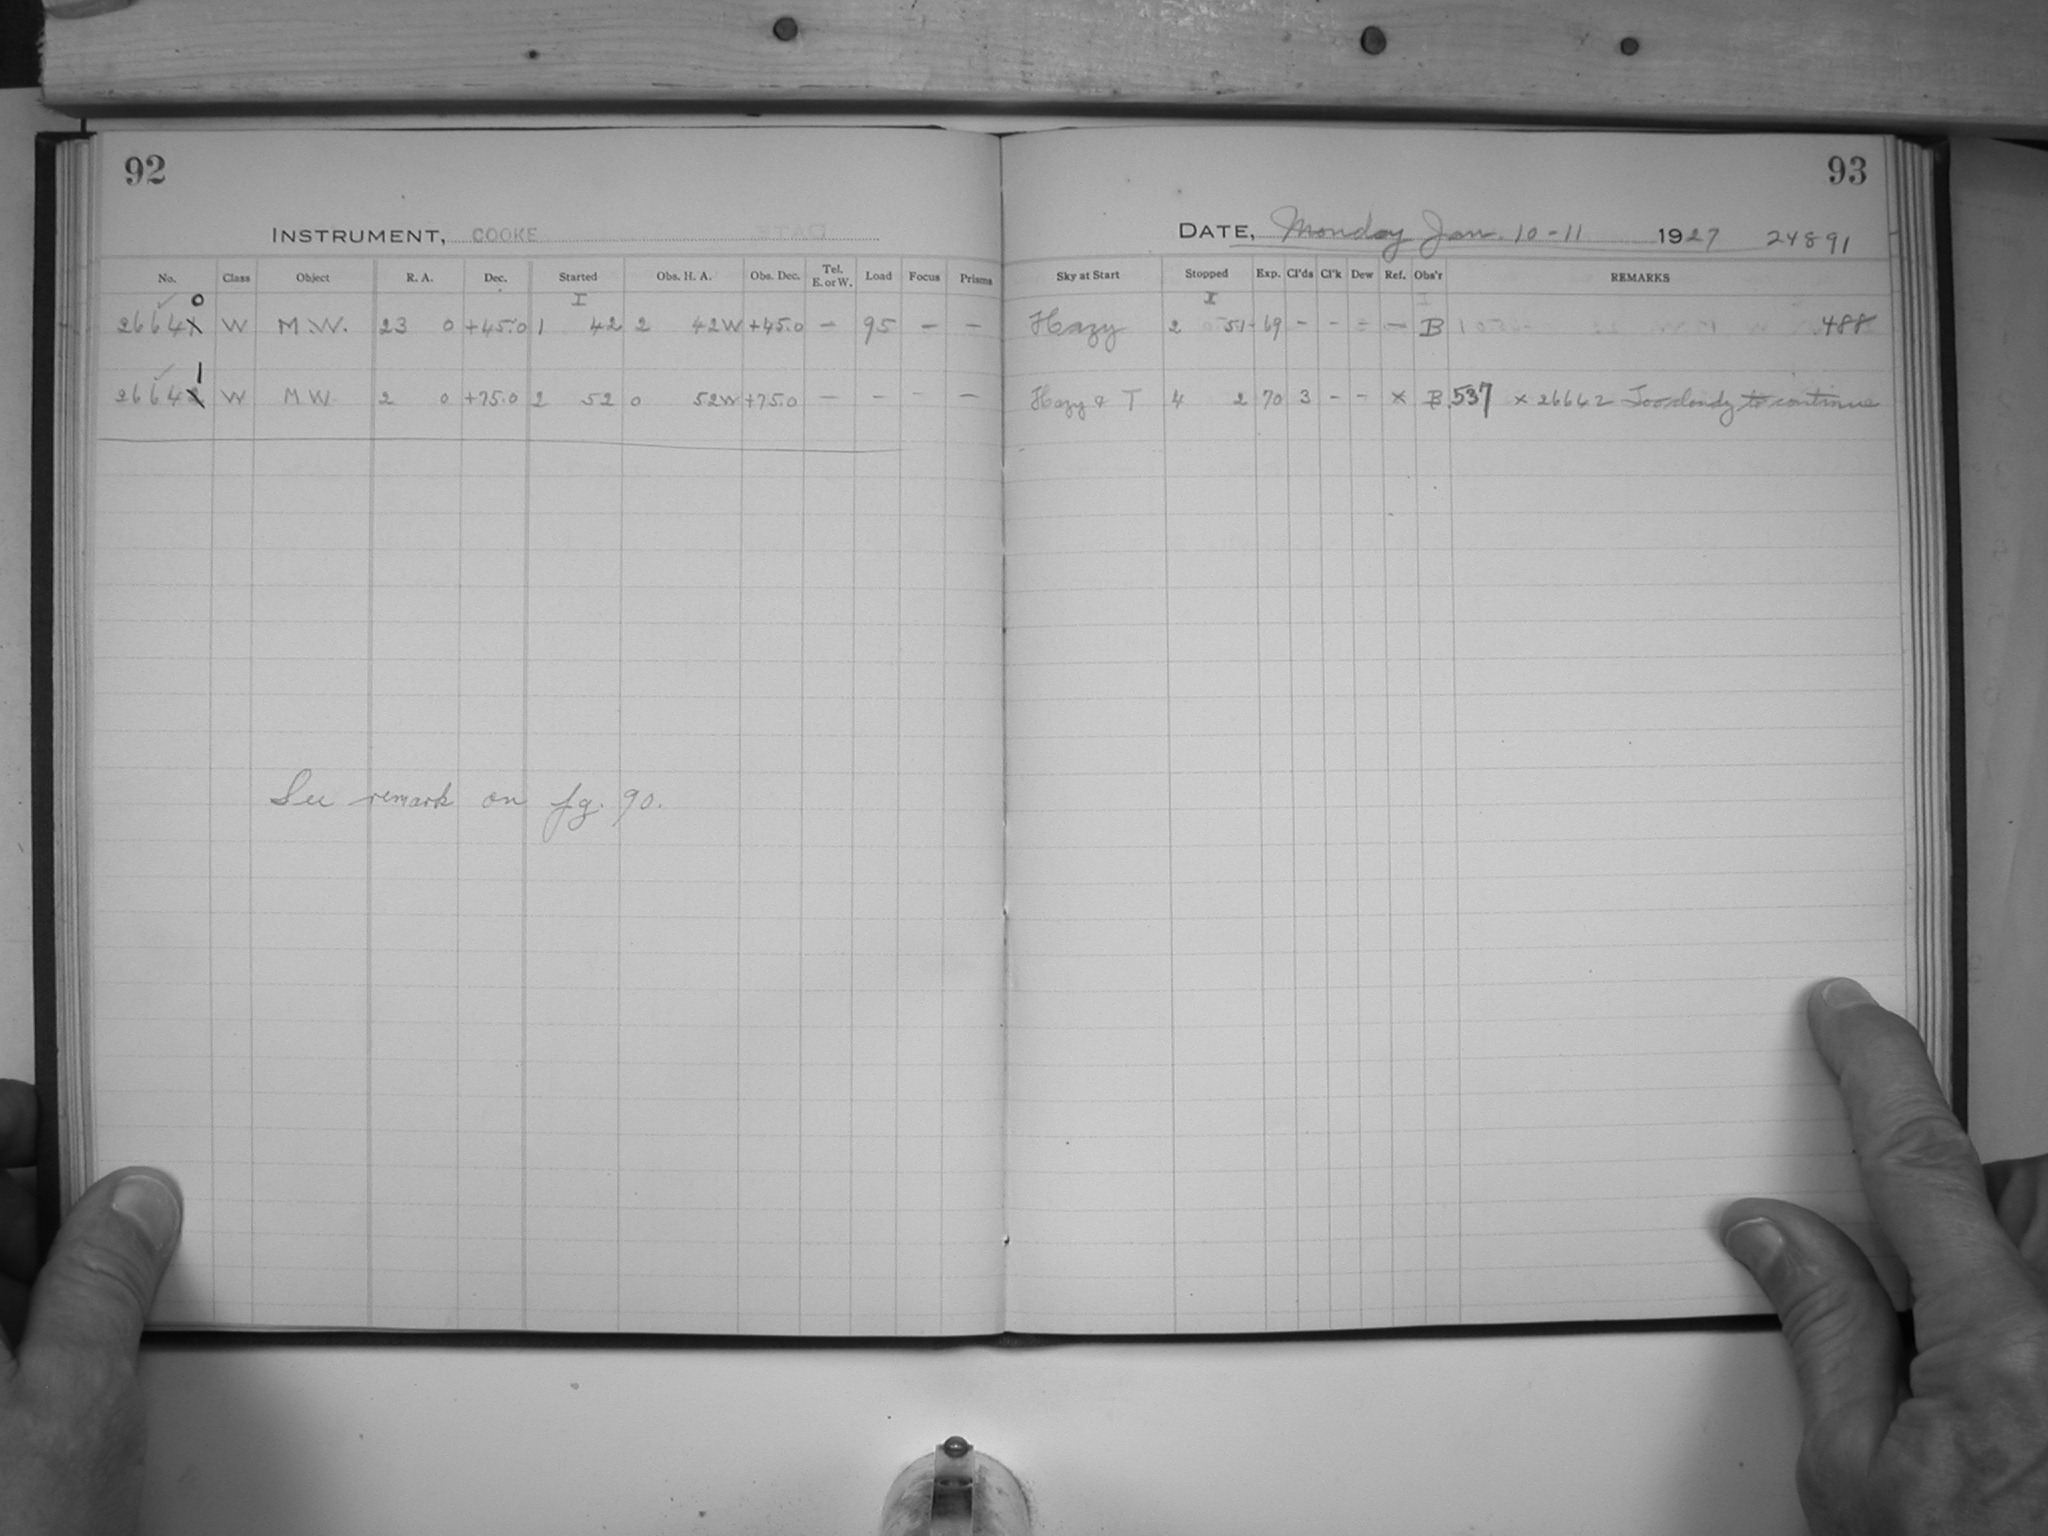 92
INSTRUMENT, COOKE
No. Class Object R. A. Dec. Started Obs. H. A. Obs. Dec. Tel. E. or W. Load Focus Prisms
0 I
26641 W M.W. 23 0 +45.0 1 42 2 42W +45.0 - 95 - -
1
26642 W MW 2 0 +75.0 2 52 0 52W +75.0 - - - -
See remark on pg. 90.
93
DATE, Monday Jan. 10-11 1927 24891
Sky at Start Stopped Exp. Cl'ds Cl'k Dew Ref. Obs'r REMARKS
I
Hazy 2 51 69 - - - - B 488
Hazy & T 4 2 70 3 - - x B 537 x 26642 Too cloudy to continue